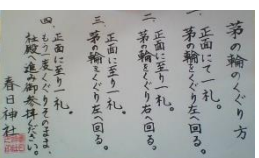 茅の輪のくぐり方
一、正面にて一礼。
茅の輪をくぐり左へ回る。
二、正面に至り一礼。
茅の輪をくぐり右へ回る。
三、正面に至り一礼。
茅の輪をくぐり左へ回る。
四、正面に至り一礼。
もう一度くぐりそのまま、
社殿へ進み御参拝ください。
春日神社